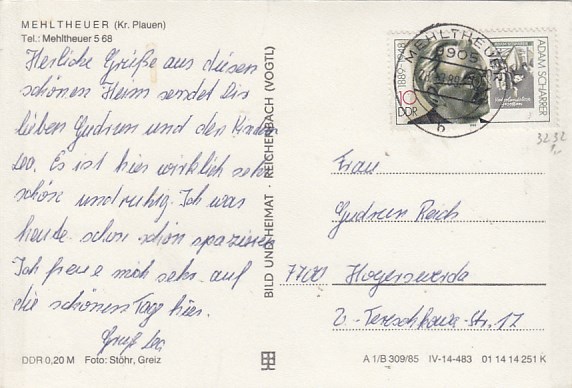 MEHLTHEUER (Kr. Plauen)
Tel.: Mehltheuer 5 68
Herzliche Grüße aus diesem
schönen Heim sendet Dir
lieben Gudrun und den Kindern
Lea. Es ist hier wirklich sehr
schön und ruhig. Ich war
heute schon schön spazieren
Ich freue mich sehr auf
die schönen Tage hier.
Gruß Lea
DDR 0,20 M Foto: Stöhr, Greiz
BILD UND HEIMAT · REICHENBACH (VOGTL)
MEHLTHEUER
9905
b
1889-1948
10
DDR
ADAM SCHARRER
3232
Frau
Gudrun Reich
7700 Hoyerswerda
V.-Tereschkowa-Str. 17
A 1/B 309/85 IV-14-483 01 14 14 251 K